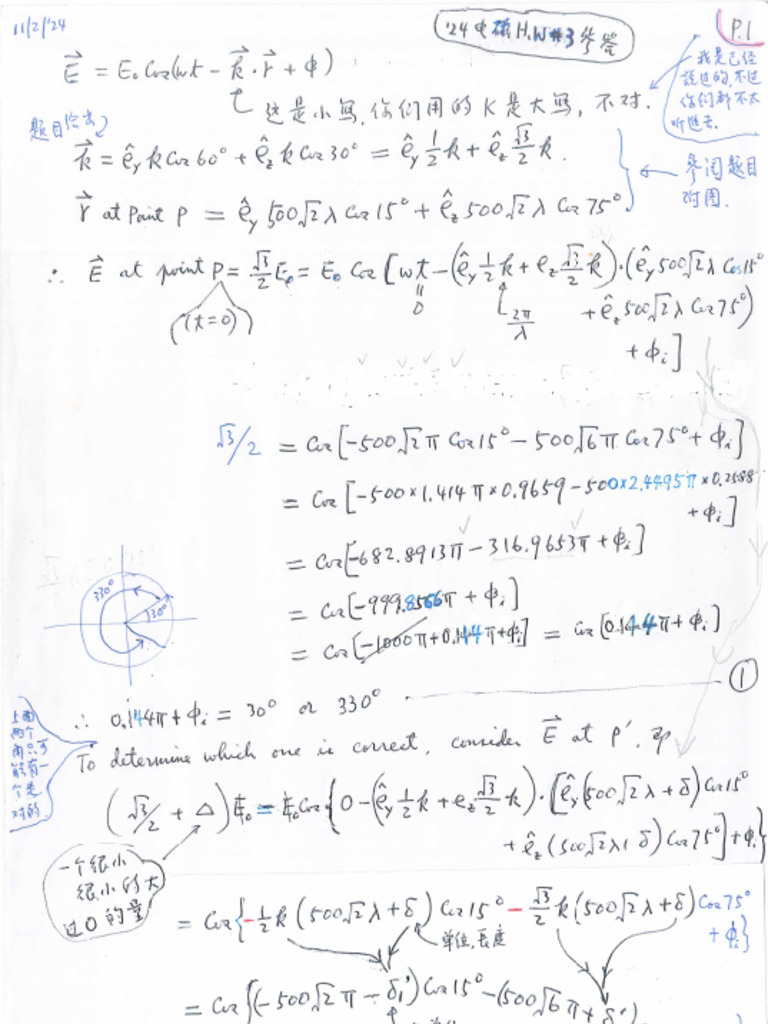 11/2/'24
'24 电磁 H.W #3 参答
P.1
E⃗ = E₀ Cos(ωt − k⃗·r⃗ + ϕ)
这是小写, 你们用的 K 是大写, 不对.
我是已经
说过的, 不过
你们都不太
听进去.
题目给出
k⃗ = ê_y k Cos 60° + ê_z k Cos 30° = ê_y ½ k + ê_z √3/2 k.
参阅题目
附图.
r⃗ at Point P = ê_y 500√2 λ Cos 15° + ê_z 500√2 λ Cos 75°
∴ E⃗ at point P = √3/2 E₀ = E₀ Cos [ωt − (ê_y ½ k + e_z √3/2 k)·(ê_y 500√2 λ Cos 15°
(t=0)
0
2π/λ
+ ê_z 500√2 λ Cos 75°)
+ ϕ_i]
√3/2 = Cos[−500√2 π Cos 15° − 500√6 π Cos 75° + ϕ_i]
= Cos [−500×1.414 π × 0.9659 − 500×2.4495π × 0.2588
+ ϕ_i]
= Cos[−682.8913π − 316.9653π + ϕ_i]
= Cos[−999.8566π + ϕ_i]
= Cos[−1000π + 0.144π + ϕ_i] = Cos [0.144π + ϕ_i]
330°
30°
①
∴ 0.144π + ϕ_i = 30° or 330°
上面
两个
角只可
能有一
个是
对的.
To determine which one is correct, consider E⃗ at P', 即
(√3/2 + Δ) E₀ = E₀ Cos{0 − (ê_y ½ k + e_z √3/2 k)·[ê_y (500√2 λ + δ) Cos 15°
+ ê_z (500√2 λ + δ) Cos 75°] + ϕ_i}
一个很小
很小的大
过 0 的量
= Cos{−½ k (500√2 λ + δ) Cos 15° − √3/2 k (500√2 λ + δ) Cos 75°
+ ϕ_i}
单位, 长度
= Cos{(−500√2 π − δ₁') Cos 15° − (500√6 π + δ')